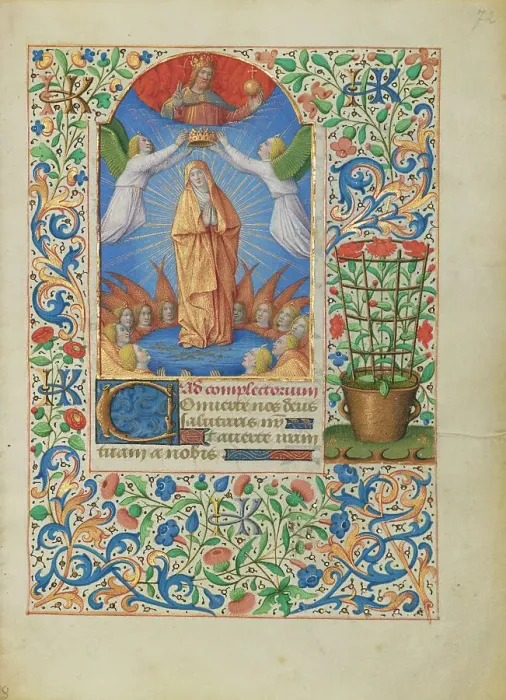 72
Ad complectorium
Conuerte nos deus
salutaris nr̄
Et auerte iram
tuam a nobis